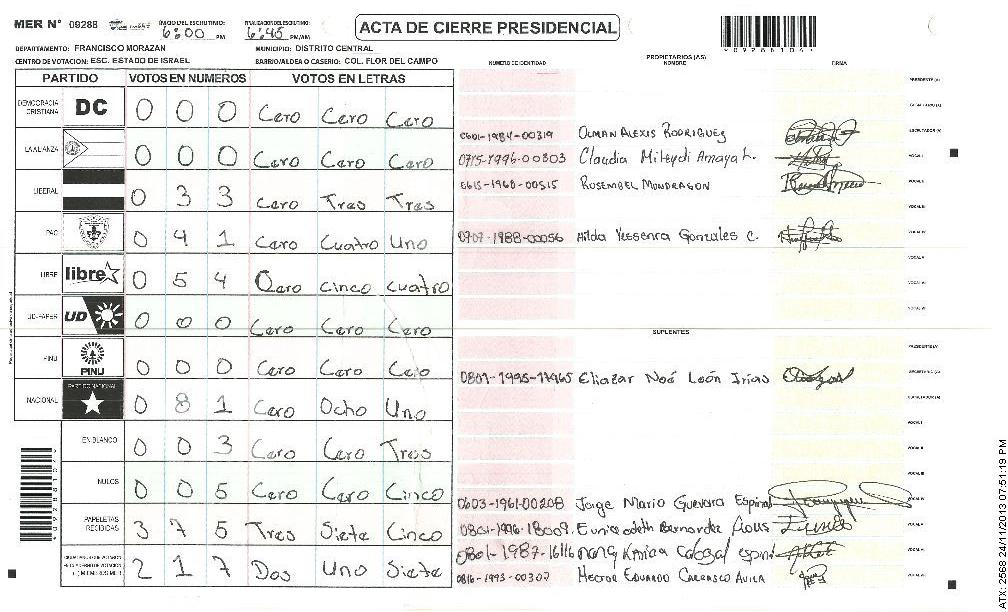 MER N° 09288
INICIO DEL ESCRUTINIO: 6:00 PM
FINALIZACION DEL ESCRUTINIO: 6:45 PM/AM
ACTA DE CIERRE PRESIDENCIAL
DEPARTAMENTO: FRANCISCO MORAZAN
MUNICIPIO: DISTRITO CENTRAL
CENTRO DE VOTACION: ESC. ESTADO DE ISRAEL
BARRIO/ALDEA O CASERIO: COL. FLOR DEL CAMPO
NUMERO DE IDENTIDAD
PROPIETARIOS (AS)
NOMBRE
FIRMA
PARTIDO VOTOS EN NUMEROS VOTOS EN LETRAS
DEMOCRACIA CRISTIANA DC 0 0 0 Cero Cero Cero
LA ALIANZA 0 0 0 Cero Cero Cero
LIBERAL 0 3 3 Cero Tres Tres
PAC 0 4 1 Cero Cuatro Uno
LIBRE libre 0 5 4 Cero Cinco Cuatro
UD-FAPER UD 0 0 0 Cero Cero Cero
PINU PINU 0 0 0 Cero Cero Cero
NACIONAL PARTIDO NACIONAL 0 8 1 Cero Ocho Uno
EN BLANCO 0 0 3 Cero Cero Tres
NULOS 0 0 5 Cero Cero Cinco
PAPELETAS RECIBIDAS 3 7 5 Tres Siete Cinco
2 1 7 Dos Uno Siete
PRESIDENTE (A)
SECRETARIO (A)
0601-1984-00319 OLMAN ALEXIS RODRIGUEZ ESCRUTADOR (A)
0715-1996-00303 Claudia Mileydi Amaya L. VOCAL I
0615-1960-00515 ROSEMBEL MONDRAGON VOCAL II
VOCAL III
0707-1988-00056 Hilda Yessenia Gonzales C. VOCAL IV
VOCAL V
VOCAL VI
VOCAL VII
SUPLENTES
PRESIDENTE (A)
0801-1995-17965 Eliazar Noé León Irias SECRETARIO (A)
ESCRUTADOR (A)
VOCAL I
VOCAL II
VOCAL III
0603-1961-00208 Jorge Mario Guevara Espinal VOCAL IV
0801-1996-18009 Eunice VOCAL V
0801-1987-16116 VOCAL VI
0816-1993-00307 HECTOR EDUARDO CARRASCO AVILA VOCAL VII
ATX: 2568 24/11/2013 07:51:19 PM